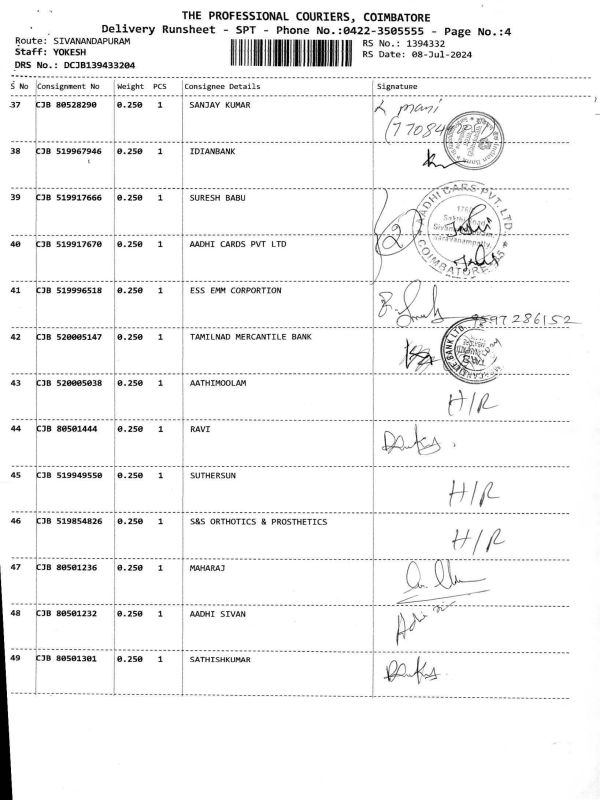 THE PROFESSIONAL COURIERS, COIMBATORE
Delivery Runsheet - SPT - Phone No.:0422-3505555 - Page No.:4
Route: SIVANANDAPURAM
Staff: YOKESH
DRS No.: DCJB139433204
RS No.: 1394332
RS Date: 08-Jul-2024
S No Consignment No Weight PCS Consignee Details Signature
37 CJB 80528290 0.250 1 SANJAY KUMAR
38 CJB 519967946 0.250 1 IDIANBANK
39 CJB 519917666 0.250 1 SURESH BABU
AADHI CARS PVT. LTD.
40 CJB 519917670 0.250 1 AADHI CARDS PVT LTD
COIMBATORE
41 CJB 519996518 0.250 1 ESS EMM CORPORTION
9597286152
42 CJB 520005147 0.250 1 TAMILNAD MERCANTILE BANK
43 CJB 520005038 0.250 1 AATHIMOOLAM H/R
44 CJB 80501444 0.250 1 RAVI
45 CJB 519949550 0.250 1 SUTHERSUN H/R
46 CJB 519854826 0.250 1 S&S ORTHOTICS & PROSTHETICS H/R
47 CJB 80501236 0.250 1 MAHARAJ
48 CJB 80501232 0.250 1 AADHI SIVAN
49 CJB 80501301 0.250 1 SATHISHKUMAR